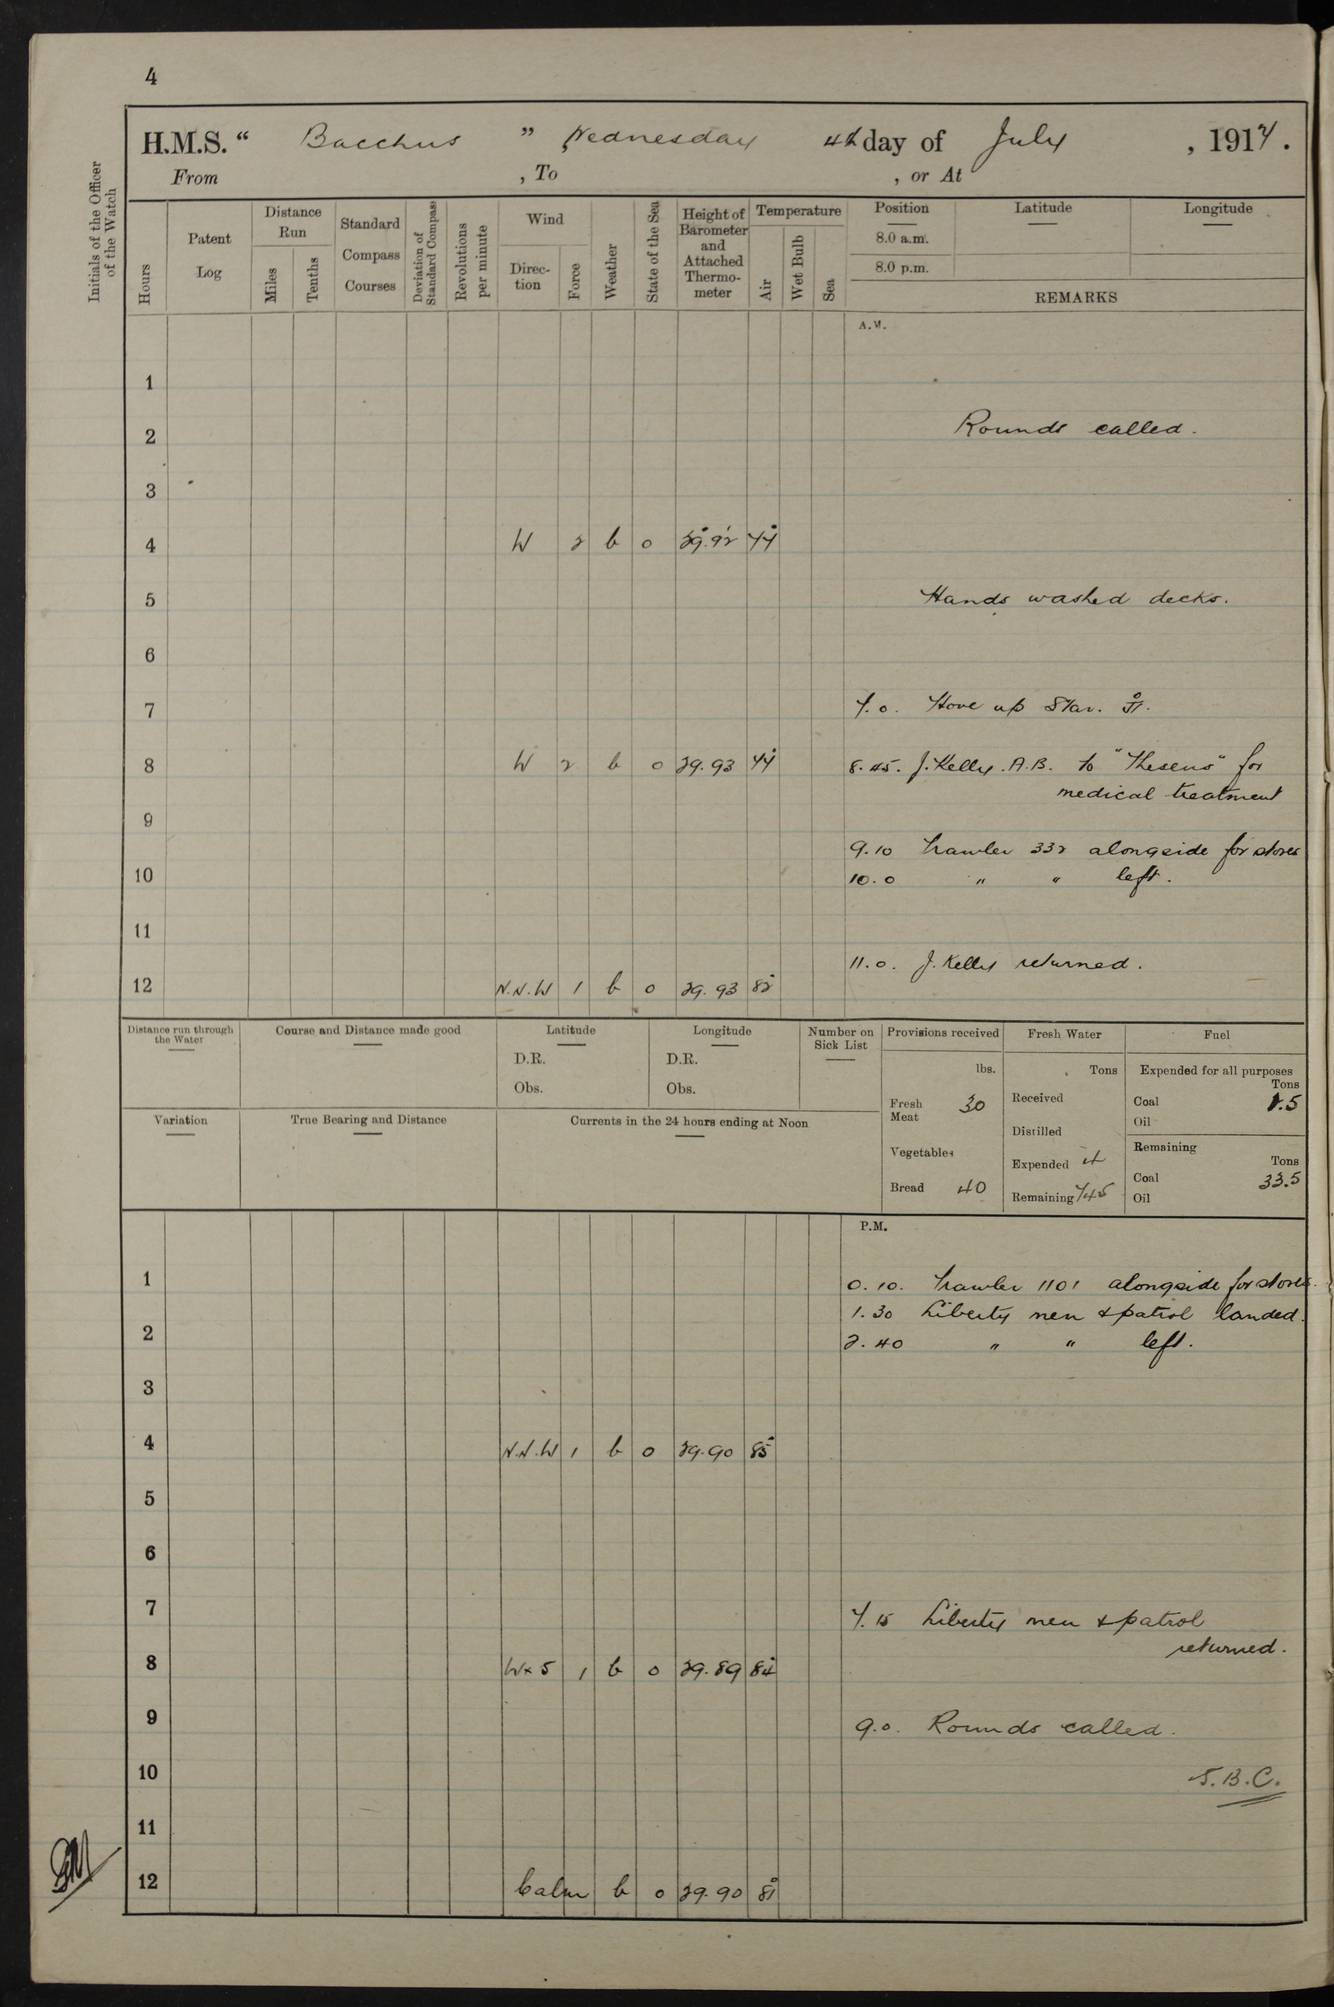 4
H.M.S. “ Bacchus ” Wednesday 4th day of July , 1917.
From , To , or At
Initials of the Officer of the Watch
Hours
Patent Log
Distance Run
Miles
Tenths
Standard Compass Courses
Deviation of Standard Compass
Revolutions per minute
Wind
Direction
Force
Weather
State of the Sea
Height of Barometer and Attached Thermometer
Temperature
Air
Wet Bulb
Sea
Position Latitude Longitude
8.0 a.m.
8.0 p.m.
REMARKS
A.M.
1
2 Rounds called.
3
4 W 2 b 0 29.92 77
5 Hands washed decks.
6
7 7.0. Hove up Star.
8 W 2 b 0 29.93 77 8.45. J. Kelly. A.B. to "Theseus" for
medical treatment
9
9.10 Trawler 332 alongside for stores
10 10.0 " " left.
11
11.0. J. Kelly returned.
12 N.N.W 1 b 0 29.93 82
Distance run through the Water
Course and Distance made good
Latitude
D.R.
Obs.
Longitude
D.R.
Obs.
Number on Sick List
Variation
True Bearing and Distance
Currents in the 24 hours ending at Noon
Provisions received
lbs.
Fresh Meat 30
Vegetables
Bread 40
Fresh Water
Tons
Received
Distilled
Expended 4
Remaining 745
Fuel
Expended for all purposes
Tons
Coal 1.5
Oil
Remaining
Tons
Coal 33.5
Oil
P.M.
1 0.10. Trawler 1101 alongside for stores.
1.30 Liberty men & patrol landed.
2 2.40 " " left.
3
4 N.N.W 1 b 0 29.90 85
5
6
7 7.15 Liberty men & patrol
returned.
8 W x S 1 b 0 29.89 84
9 9.0. Rounds called.
10 S.B.C.
11
12 Calm b 0 29.90 81